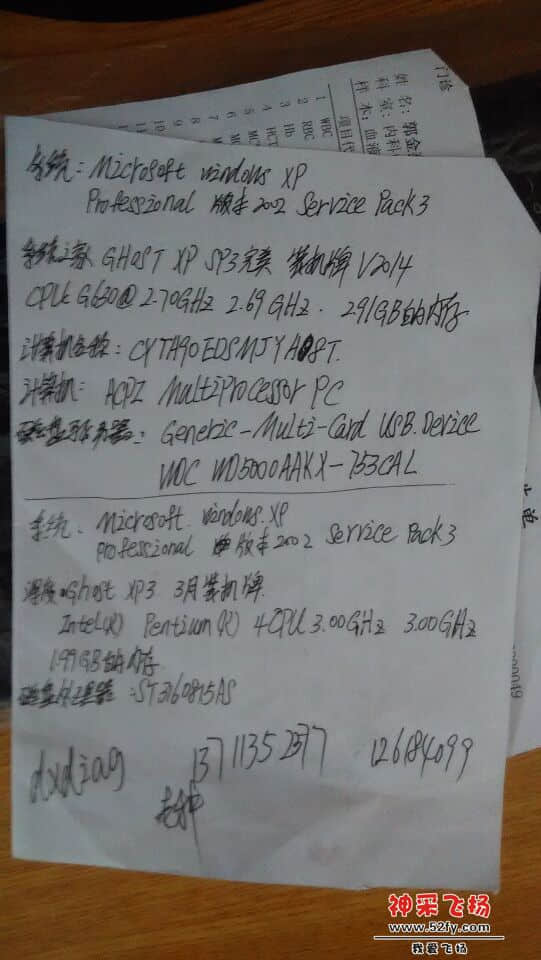 门诊
姓名:郭金
科室:内科
样本:血液
项目代
1 WBC
2 RBC
3 Hb
4 HCT
5
6
7
8
9
10
11
系统:Microsoft windows XP
Professional 版本2002 Service Pack3
系统之家 GHOST XP SP3完美 装机牌 V2014
CPU: G630@ 2.70GHz 2.69GHz. 2.91GB的内存
计算机名称:
计算机: ACPI MultiProcessor PC
磁盘驱动器: Generic-Multi-Card USB.Device
WDC WD5000AAKX-753CAL
系统. Microsoft. windows.XP
Professional 版本2002 Service Pack3
深度Ghost XP3 3月装机牌.
Intel(R) Pentium(R) 4CPU 3.00GHz 3.00GHz
1.99GB的内存.
磁盘 :ST3160815AS
dxdiag 13711352377 126184099
0000049
单
神采飞扬
www.52fy.com
我爱飞扬